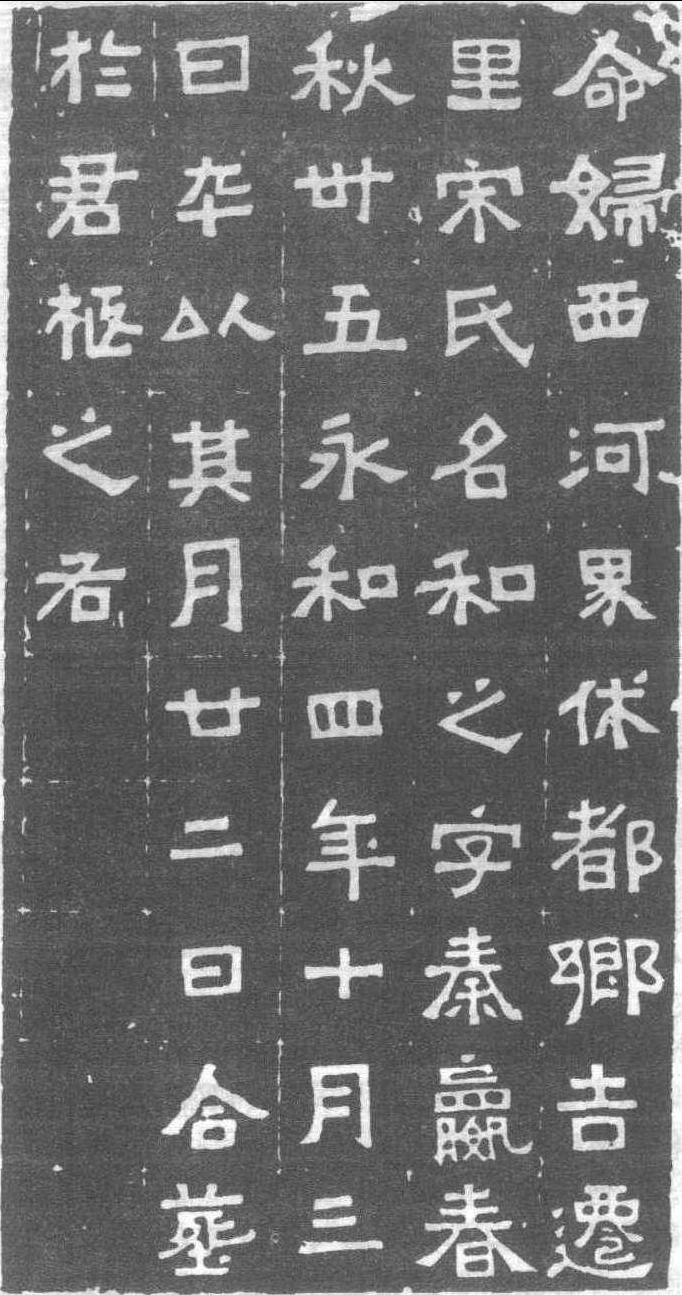 命婦西河界休都鄉吉遷
里宋氏名和之字秦嬴春
秋卅五永和四年十月三
日卒以其月廿二日合葬
於君柩之右